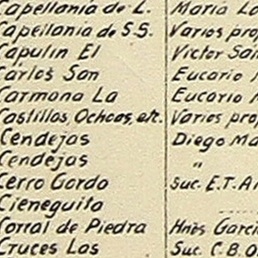 Capellanía de L. María Lo
Capellanía de S.S. Varios pro
Capulin El Victor Sai
Carlos San Eucario M
Carmona La Eucario M
Castillos, Ochoas, etc. Varios prop
Cendejos Diego Ma
Cendejos "
Cerro Gordo Suc. E.T. A
Cieneguita
Corral de Piedra Hnos Garci
Cruces Las Suc. C.B.O